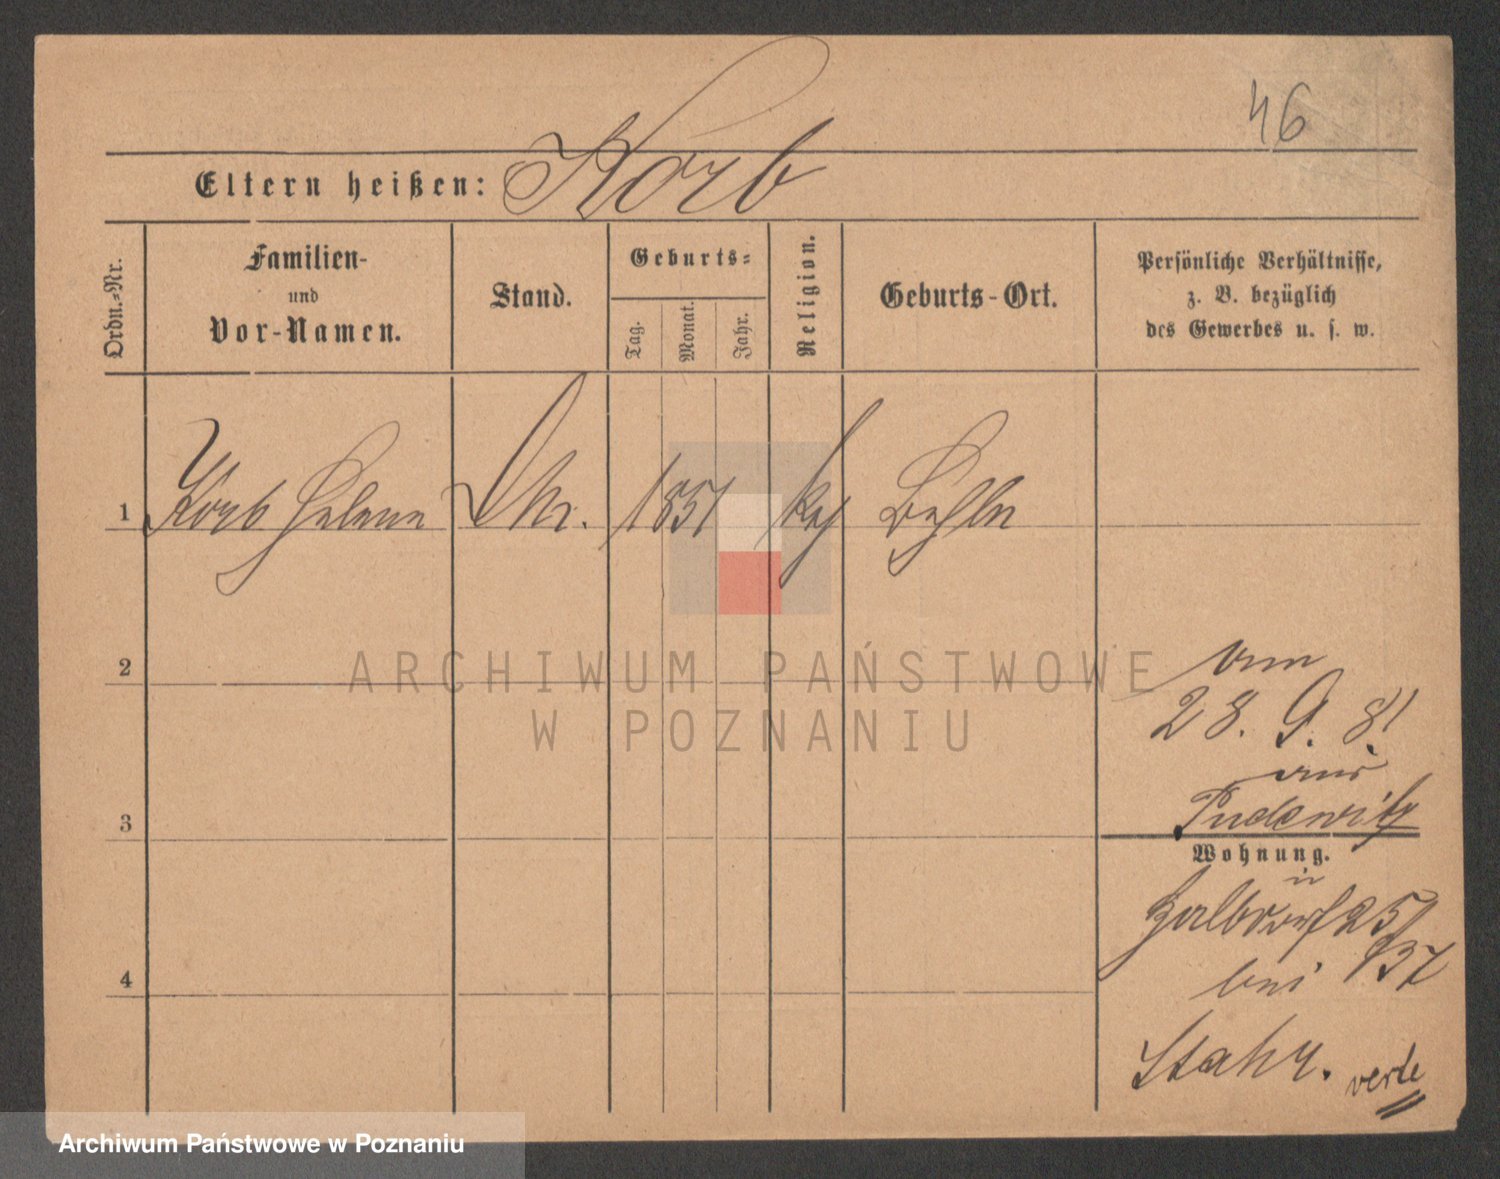 46
Eltern heißen: Korb
Ordn.-Nr.
Familien-
und
Vor-Namen.
Stand.
Geburts-
Tag.
Monat.
Jahr.
Religion.
Geburts-Ort.
Persönliche Verhältnisse,
z. B. bezüglich
des Gewerbes u. s. w.
1 Korb Helene 1851
2
3
4
28. 9. 81
aus
Pudewitz
Wohnung.
in
Halbdorf 25/
bei 37
Stahr.
verte
ARCHIWUM PAŃSTWOWE
W POZNANIU
Archiwum Państwowe w Poznaniu